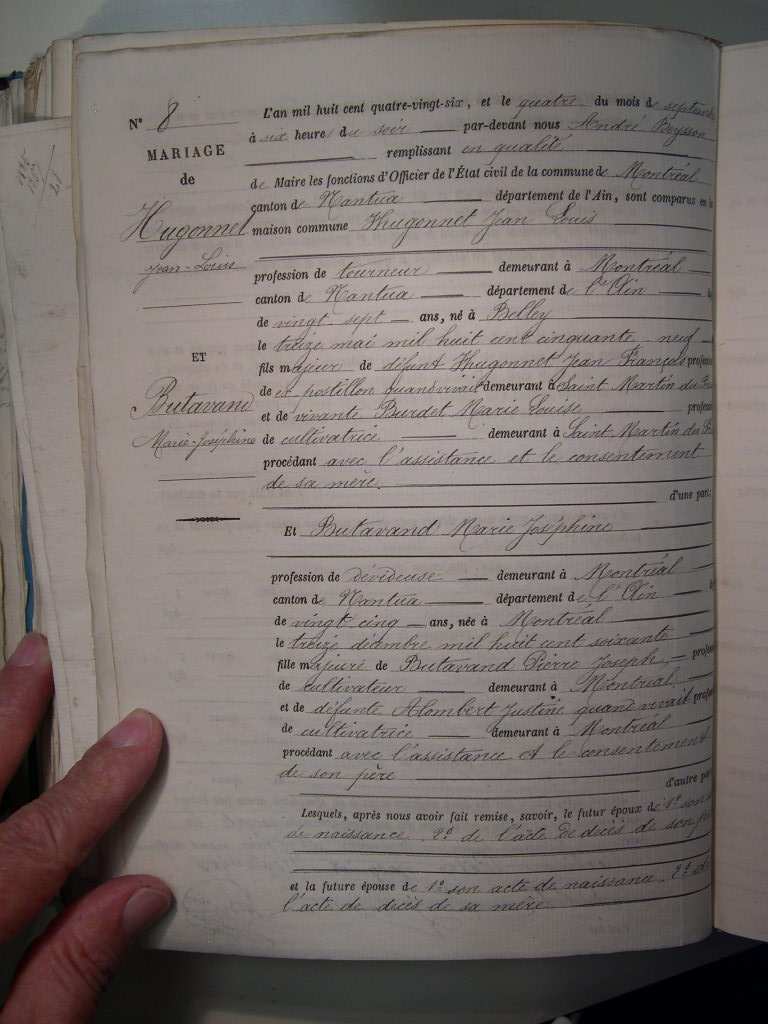 N° 8
MARIAGE
de
Hugonnet
Jean-Louis
ET
Butavand
Marie-Joséphine
L'an mil huit cent quatre-vingt-six, et le quatre du mois de septembre
à six heures du soir par-devant nous André Reysson
remplissant en qualité
de Maire les fonctions d'Officier de l'État civil de la commune de Montréal
canton de Nantua département de l'Ain, sont comparus en la
maison commune Hugonnet Jean Louis
profession de tourneur demeurant à Montréal
canton de Nantua département de l'Ain
de vingt-sept ans, né à Belley
le treize mai mil huit cent cinquante-neuf
fils majeur de défunt Hugonnet Jean François profess
de postillon quand vivait demeurant à Saint Martin du
et de vivante Burdet Marie Louise profess
de cultivatrice demeurant à Saint Martin du
procédant avec l'assistance et le consentement
de sa mère.
d'une part:
Et Butavand Marie Joséphine
profession de dévideuse demeurant à Montréal
canton de Nantua département de l'Ain
de vingt cinq ans, née à Montréal
le treize décembre mil huit cent soixante
fille majeure de Butavand Pierre Joseph, profess
de cultivateur demeurant à Montréal
et de défunte Alombert Justine quand vivait profess
de cultivatrice demeurant à Montréal
procédant avec l'assistance et le consentement
de son père
d'autre part
Lesquels, après nous avoir fait remise, savoir, le futur époux de 1° son
de naissance. 2° de l'acte de décès de son
et la future épouse de 1° son acte de naissance. 2° de
l'acte de décès de sa mère